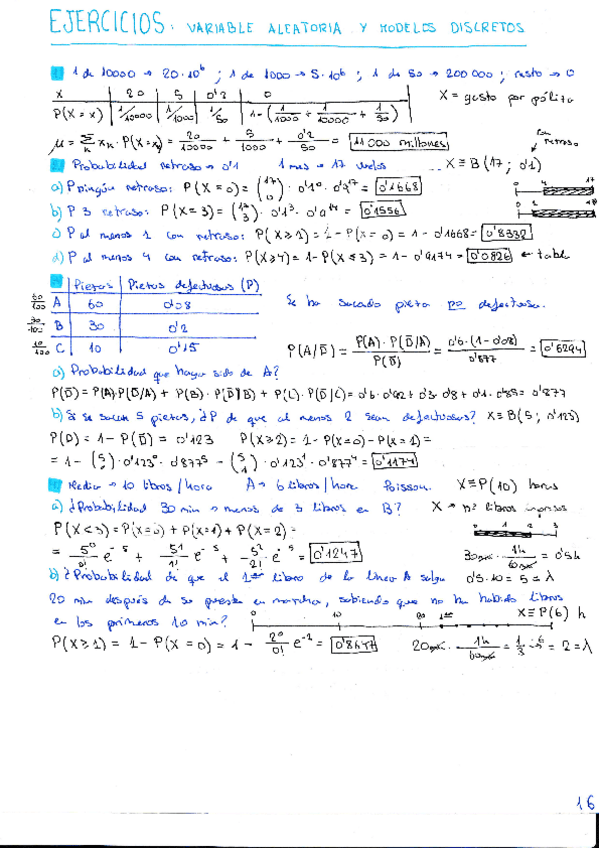 EJERCICIOS: VARIABLE ALEATORIA Y MODELOS DISCRETOS
1 1 de 10000 → 20·10⁶ ; 1 de 1000 → 5·10⁶ ; 1 de 50 → 200 000 ; resto → 0
X 20 5 0'2 0 X = gasto por póliza
P(X=x) 1/10000 1/1000 1/50 1-(1/1000 + 1/10000 + 1/50)
μ = Σ xₖ · P(X=xₖ) = 20/10000 + 5/1000 + 0'2/50 = 11 000 millones
Probabilidad retraso → 0'1 1 mes → 17 vuelos X ≡ B(17; 0'1)
con retraso
a) P ningún retraso: P(X=0) = (17 0) · 0'1⁰ · 0'9¹⁷ = 0'1668
b) P 3 retraso: P(X=3) = (17 3) · 0'1³ · 0'9¹⁴ = 0'1556
c) P al menos 1 con retraso: P(X≥1) = 1 - P(X=0) = 1 - 0'1668 = 0'8332
d) P al menos 4 con retraso: P(X≥4) = 1 - P(X≤3) = 1 - 0'9174 = 0'0826 ← tabla
Piezas Piezas defectuosas (P)
60/100 A 60 0'08 Se ha sacado pieza no defectuosa.
30/100 B 30 0'2
10/100 C 10 0'15 P(A/D̄) = P(A)·P(D̄/A) / P(D̄) = 0'6·(1-0'08) / 0'877 = 0'6294
a) Probabilidad que haya sido de A?
P(D̄) = P(A)·P(D̄/A) + P(B)·P(D̄/B) + P(C)·P(D̄/C) = 0'6·0'92 + 0'3·0'8 + 0'1·0'85 = 0'877
b) Si se sacan 5 piezas, ¿P de que al menos 2 sean defectuosas? X ≡ B(5; 0'123)
P(D) = 1 - P(D̄) = 0'123 P(X≥2) = 1 - P(X=0) - P(X=1) =
= 1 - (5 0) · 0'123⁰ · 0'877⁵ - (5 1) · 0'123¹ · 0'877⁴ = 0'1174
Media → 10 libros/hora A → 6 libros/hora Poisson. X ≡ P(10) horas
a) ¿Probabilidad 30 min → menos de 3 libros en B? X → nº libros impresos
P(X<3) = P(X=0) + P(X=1) + P(X=2) =
= 5⁰/0! e⁻⁵ + 5¹/1! e⁻⁵ + 5²/2! e⁻⁵ = 0'1247 30 min · 1h/60 min = 0'5h
b) ¿Probabilidad de que el 1er libro de la línea A salga 0'5·10 = 5 = λ
20 min después de su puesta en marcha, sabiendo que no ha habido libros
en los primeros 10 min? X ≡ P(6) h
P(X≥1) = 1 - P(X=0) = 1 - 2⁰/0! e⁻² = 0'8647 20 min · 1h/60 min = 1/3 · 6 = 2 = λ
16